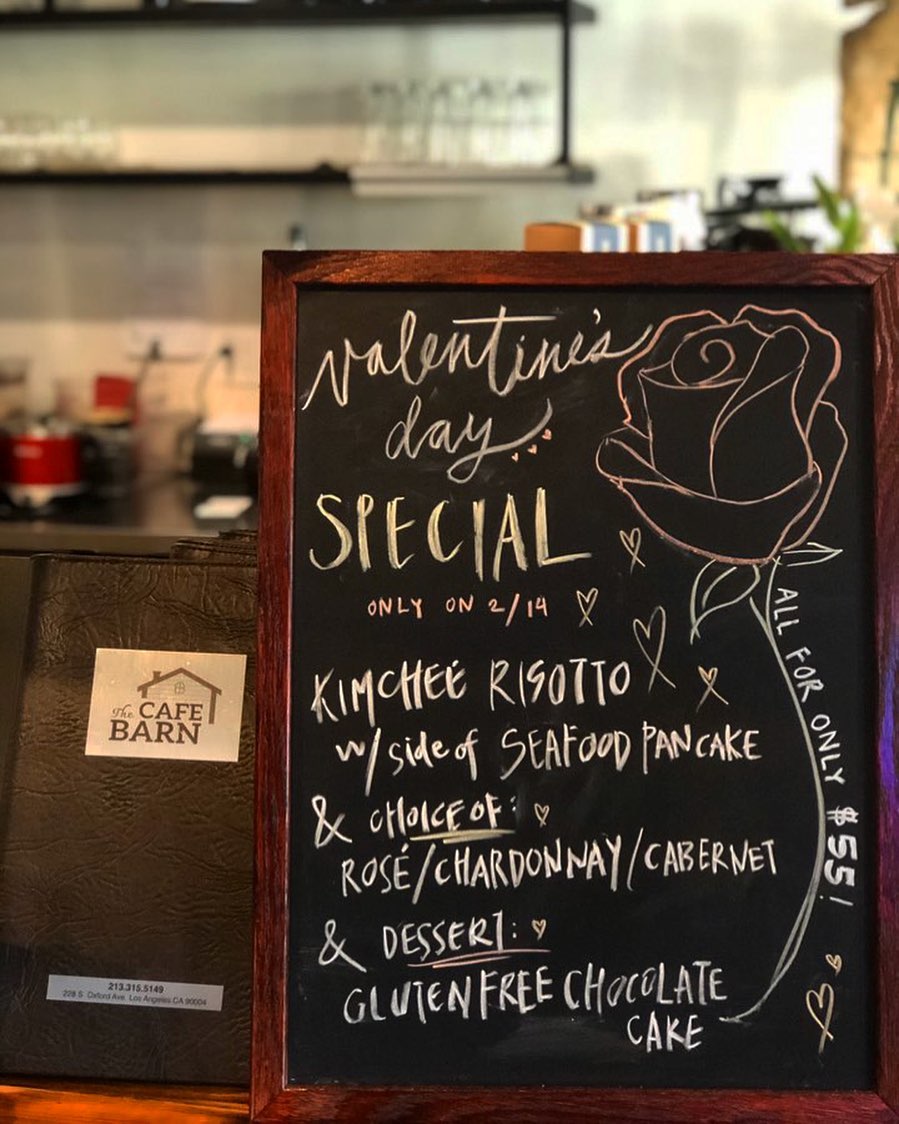 valentine's
day
SPECIAL
ONLY ON 2/14
KIMCHEE RISOTTO
w/ side of SEAFOOD PANCAKE
& CHOICE OF:
ROSÉ/CHARDONNAY/CABERNET
& DESSERT:
GLUTEN FREE CHOCOLATE
CAKE
ALL FOR ONLY $55!
The CAFE
BARN
213.315.5149
228 S. Oxford Ave. Los Angeles CA 90004